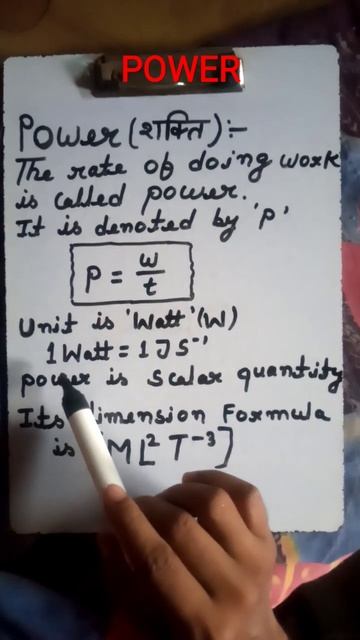 POWER
Power (शक्ति) :-
The rate of doing work
is called power.
It is denoted by 'p'
P = w/t
Unit is 'Watt' (W)
1 Watt = 1 J S⁻¹
power is scalar quantity
Its dimension Formula
is [M L² T⁻³]